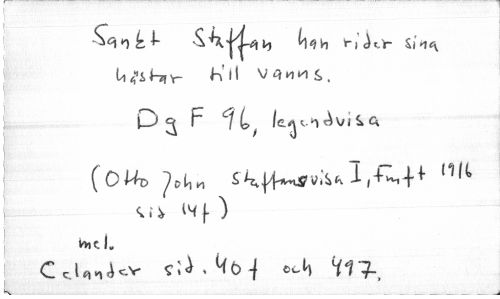 Sankt Staffan han rider sina
hästar till vanns.
DgF 96, legendvisa
(Otto John Staffansvisa I, Fmft 1916
sid 14f)
mel.
Celander sid. 40f och 497.